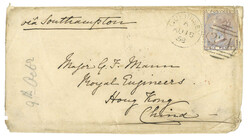 via Southampton
Major G. F. Mann
Royal Engineers
Hong Kong
China
9th Decr